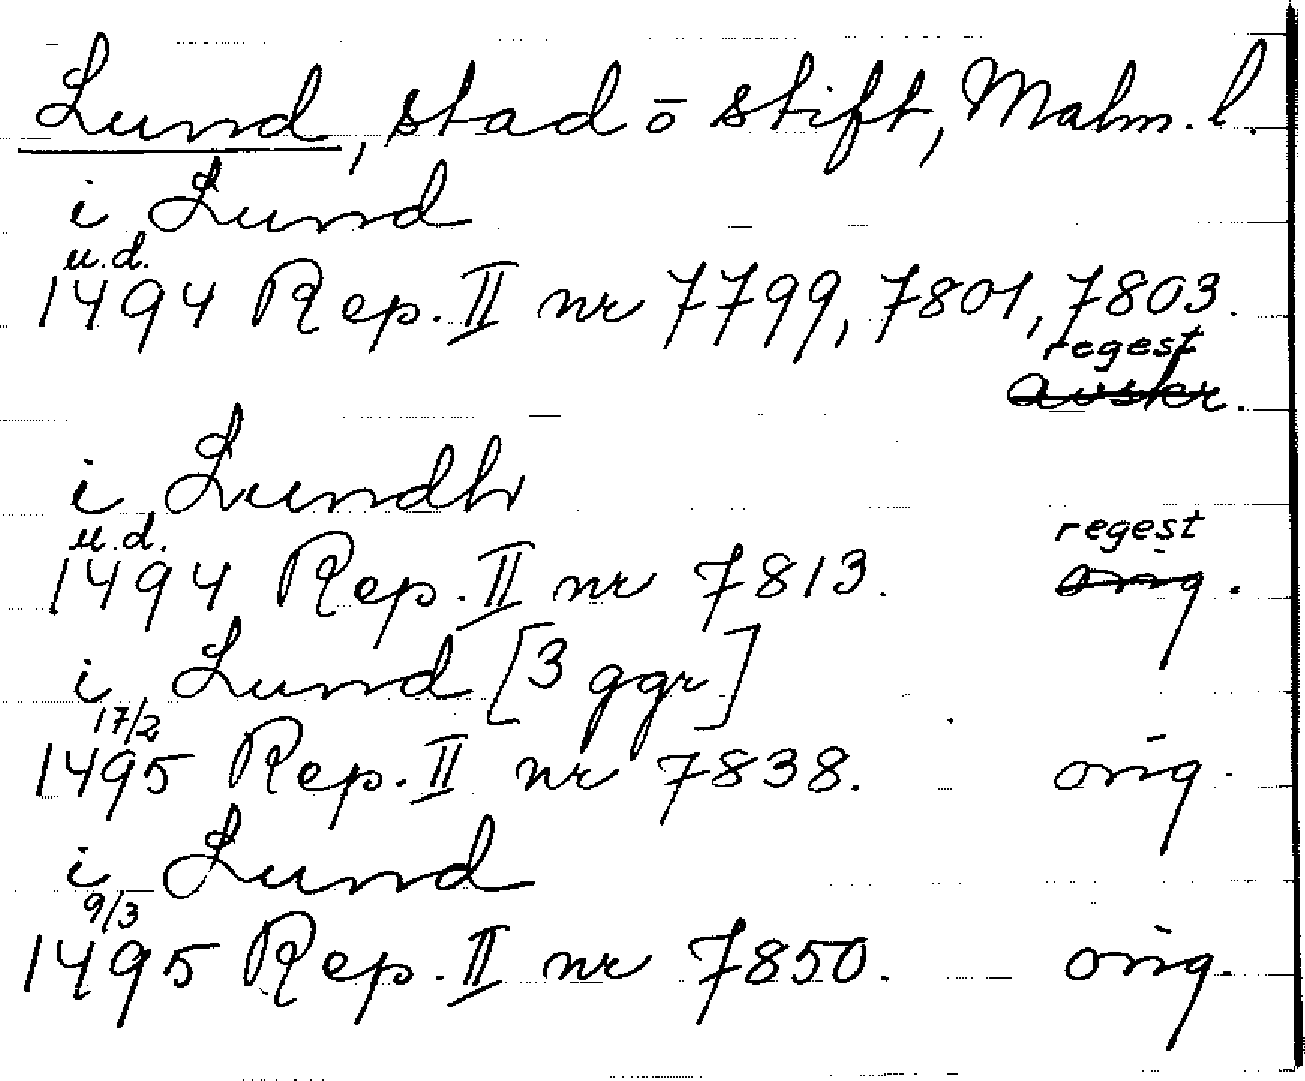 Lund, stad ō stift, Malm. l.
i Lund
u.d.
1494 Rep. II nr 7799, 7801, 7803.
regest
avskr.
i Lundh
u.d. regest
1494 Rep. II nr 7813. orig.
i Lund [3 ggr]
17/2
1495 Rep. II nr 7838. orig.
i Lund
9/3
1495 Rep. II nr 7850. orig.